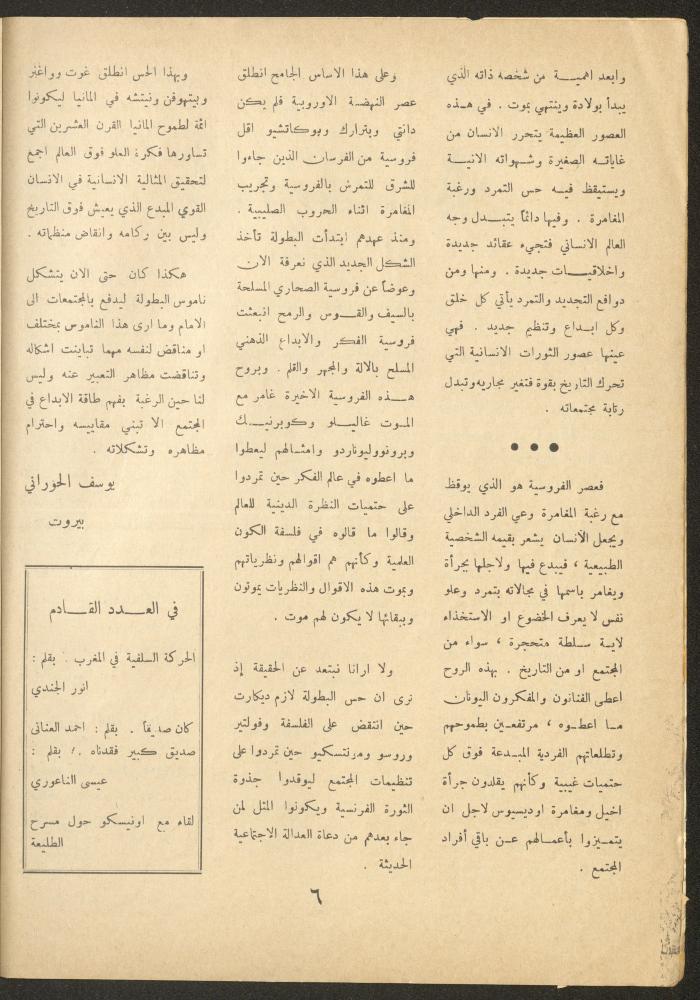 وابعد اهميـــة من شخصه ذاته الذي
يبدأ بولادة وينتهي بموت . في هـــذه
العصور العظيمة يتحرر الانسان من
غاياتـه الصغيرة وشـهواته الانيـــة
ويستيقظ فيــه حس التمرد ورغبة
المغامرة . وفيها دائماً يتبـــدل وجه
العالم الانساني فتجيء عقائد جديدة
واخلاقيـــات جديدة . ومنها ومن
دوافع التجديد والتمرد يأتي كل خلق
وكل ابـــداع وتنظيم جديد . فهي
عينها عصور الثورات الانسانية التي
تحرك التاريخ بقوة فتغير مجاريه وتبدل
رتابة مجتمعاته .
● ● ●
فعصر الفروسية هو الذي يوقظ
مع رغبة المغامرة وعي الفرد الداخلي
ويجعل الانسان يشعر بقيمه الشخصية
الطبيعية ، فيبدع فيها ولاجلها بجرأة
ويغامر باسمها في مجالاته بتمرد وعلو
نفس لا يعرف الخضوع او الاستخذاء
لايـة سـلطة متحجرة ، سواء من
المجتمع او من التاريخ . بهذه الروح
اعطى الفنانون والمفكرون اليونان
مـا اعطـوه ، مرتفعـين بطموحهم
وتطلعاتهم الفردية المبـدعة فوق كل
حتميات غيبية وكأنهم يقلدون جرأة
اخيل ومغامرة اوديسيوس لاجل ان
يتمـيزوا بأعمـالهم عـن باقي أفراد
المجتمع .
وعلى هذا الاساس الجامح انطلق
عصر النهضة الاوروبية فلم يكن
دانتي وبترارك وبوكاتشيو اقل
فروسية من الفرسان الذين جاءوا
للشرق للتمرس بالفروسية وتجريب
المغامرة اثناء الحروب الصليبية .
ومنذ عهدهم ابتدأت البطولة تأخذ
الشكل الجديد الذي نعرفة الان
وعوضاً عن فروسية الصحاري المسلحة
بالسيف والقـــوس والرمح انبعثت
فروسية الفكر والابداع الذهني
المسلح بالالة والمجهر والقلم . وبروح
هـــذه الفروسية الاخيرة غامر مع
المـوت غاليـــلو وكـوبرنيـــك
وبرونووليوناردو وامثـالهم ليعطوا
ما اعطوه في عالم الفكر حين تمردوا
على حتميات النظرة الدينية للعالم
وقالوا ما قالوه في فلسفة الكون
العلمية وكأنهم هم اقوالهم ونظرياتهم
وبموت هذه الاقوال والنظريات يموتون
وببقائها لا يكون لهم موت .
ولا ارانا نبتعد عن الحقيقة إذ
نرى ان حس البطولة لازم ديكارت
حين انتقض على الفلسفة وفولتير
وروسو ومونتسكيو حين تمردوا على
تنظيمات المجتمع ليوقدوا جذوة
الثورة الفرنسية ويكونوا المثل لمن
جاء بعدهم من دعاة العدالة الاجتماعية
الحديثة .
وبهذا الحس انطلق غوت وواغنر
وبيتهوفن ونيتشه في المانيا ليكونوا
ائمة لطموح المانيا القرن العشرين التي
تساورها فكرة العلو فوق العالم اجمع
لتحقيق المثالية الانسانية في الانسان
القوي المبدع الذي يعيش فوق التاريخ
وليس بين ركامه وانقاض منظماته .
هكذا كان حتى الان يتشكل
ناموس البطولة ليدفع بالمجتمعات الى
الامام وما ارى هذا الناموس بمختلف
او مناقض لنفسه مهما تباينت اشكاله
وتناقضت مظاهر التعبير عنه وليس
لنا حين الرغبة بفهم طاقة الابداع في
المجتمع الا تبني مقاييسه واحترام
مظاهره وتشكلاته .
يوسف الحوراني
بيروت
في العـــدد القـــادم
الحركة السلفية في المغرب . بقلم :
انور الجندي
كان صديقاً . بقلم : احمد العناني
صديق كبير فقدناه .! بقلم :
عيسى الناعوري
لقاء مع اونيسكو حول مسرح
الطليعة
٦